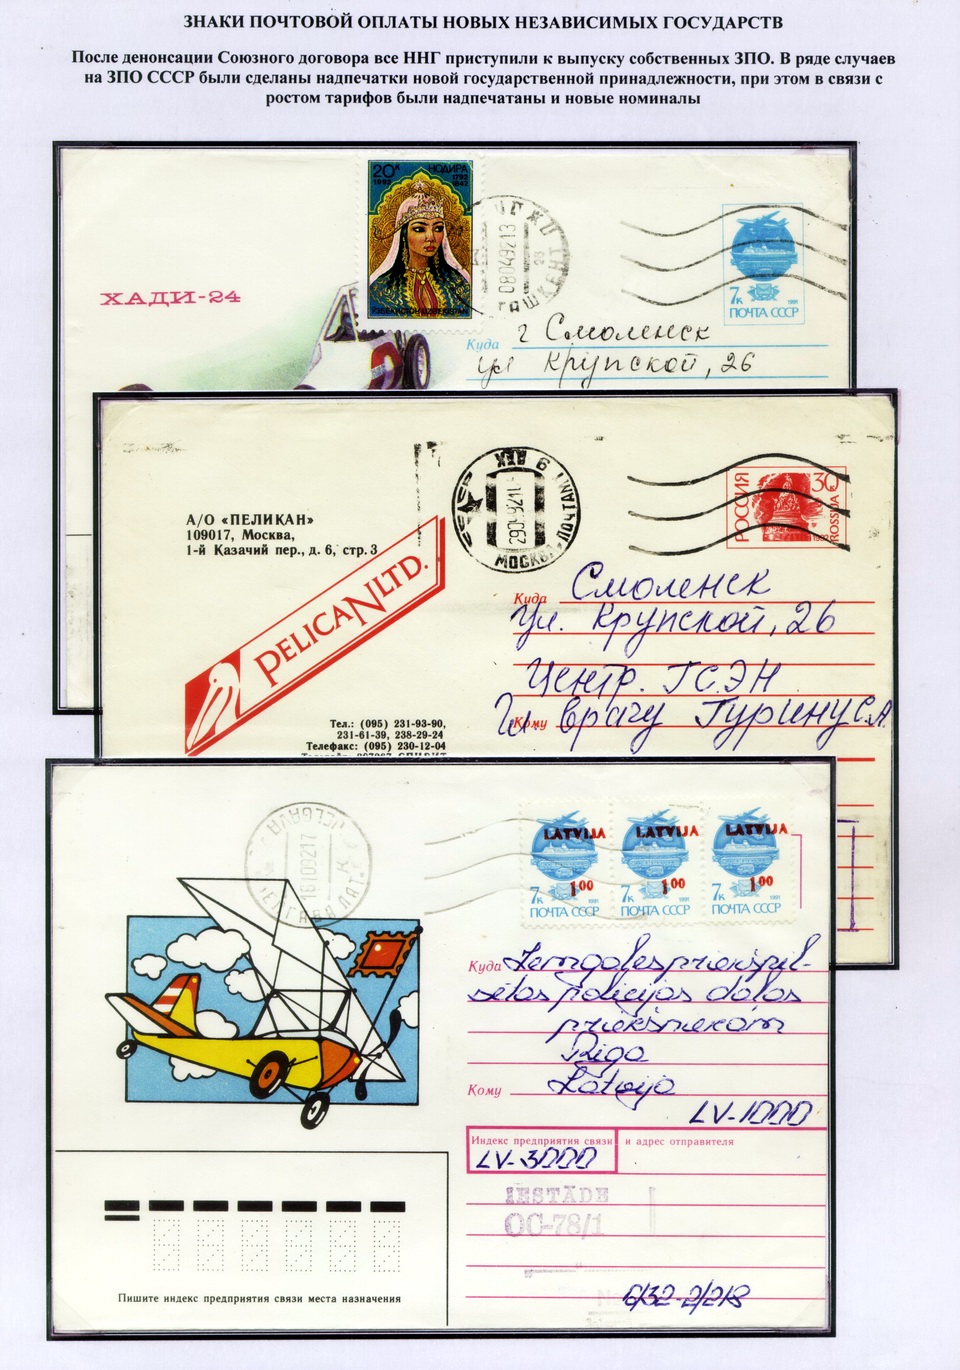 ЗНАКИ ПОЧТОВОЙ ОПЛАТЫ НОВЫХ НЕЗАВИСИМЫХ ГОСУДАРСТВ
После денонсации Союзного договора все ННГ приступили к выпуску собственных ЗПО. В ряде случаев
на ЗПО СССР были сделаны надпечатки новой государственной принадлежности, при этом в связи с
ростом тарифов были надпечатаны и новые номиналы
20к НОДИРА
1992 1792
1842
ХАДИ-24
08049213
ТАШКЕНТ
7к 1991
ПОЧТА СССР
Куда г Смоленск
ул Крупской, 26
А/О «ПЕЛИКАН»
109017, Москва,
1-й Казачий пер., д. 6, стр. 3
PELICAN LTD.
МОСКВА
ПОЧТАМТ
РОССИЯ 30к ROSSIJA
1992
Куда Смоленск
ул. Крупской, 26
Центр. ГСЭН
Кому Гл врачу Гурину С.А
Тел.: (095) 231-93-90,
231-61-39, 238-29-24
Телефакс: (095) 230-12-04
JELGAVA
16109217
LATVIJA LATVIJA LATVIJA
1 00 1 00 1 00
7к 1991 7к 1991 7к 1991
ПОЧТА СССР ПОЧТА СССР ПОЧТА СССР
Куда Zemgales priekšpil-
sētas policijas daļas
priekšniekam
Rīga
Кому Latvija
LV-1000
Индекс предприятия связи и адрес отправителя
LV-3000
IESTĀDE
ОС-78/1
6/32-2/218
Пишите индекс предприятия связи места назначения